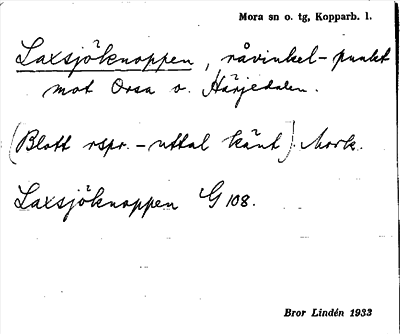 Mora sn o. tg, Kopparb. l.
Laxsjöknoppen, råvinkel-punkt
mot Orsa o. Härjedalen.
(Blott rspr.-uttal känt). Mork.
Laxsjöknoppen G 108.
Bror Lindén 1933